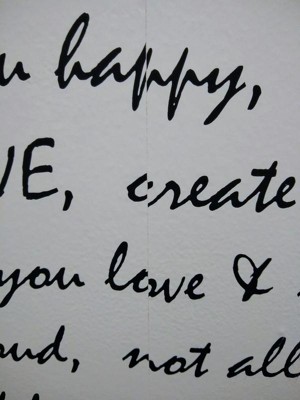 u happy,
VE, create
you love &
oud, not all